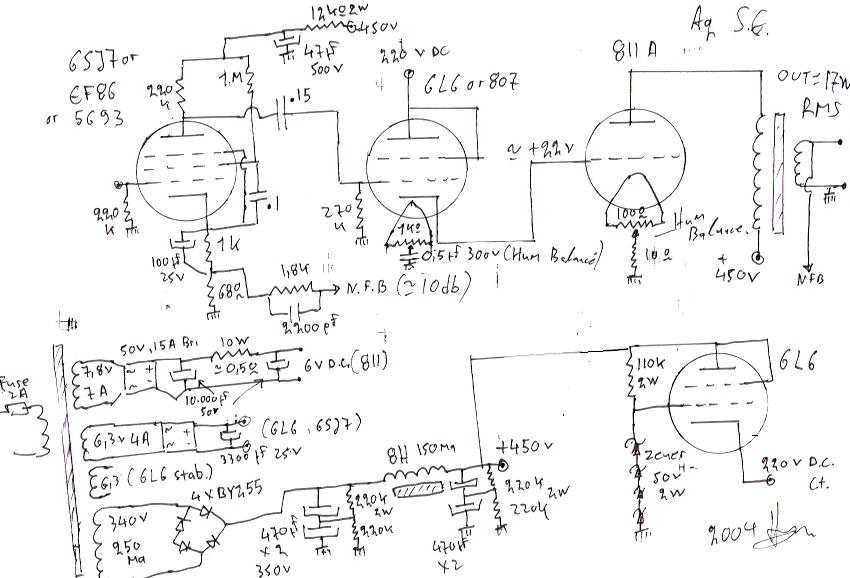 Ag S.E.
12kΩ 2w
450v
47µf
500v
220 v DC
811 A
6SJ7 or
EF86
or 5693
220
k
1.M
.15
6L6 or 807
OUT=17W
RMS
≃ +22v
220
k
.1
270
k
1kΩ
100Ω
Hum
Balance.
100µf
25v
1k
0,5µf 300v (Hum Balance)
10Ω
+
450v
NFB
68Ω
1,8k
N.F.B (≃10db)
2200pf
50v, 15A Bri
10W
≃0,5Ω
6V D.C. (811)
7,8v
7A
~ +
~ -
10.000µf
50v
Fuse
2A
6,3v 4A
~ +
~ -
(6L6, 6SJ7)
3300µf 25v
6,3 (6L6 stab.)
4xBY255
340v
250
Ma
470µf
x2
350v
220k
2W
220k
8H 150Ma
+450v
220k
2W
220k
470µf
x2
110k
2W
6L6
Zener
50v
2W
220v D.C.
Ct.
2004